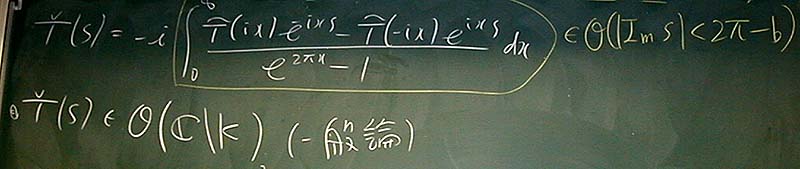 Ť(s) = -i ∫₀^∞ (T̂(ix) e^{-ixs} - T̂(-ix) e^{ixs}) / (e^{2πx} - 1) dx ∈ O(|Im s| < 2π - b)
Ť(s) ∈ O(ℂ\K) (一般論)